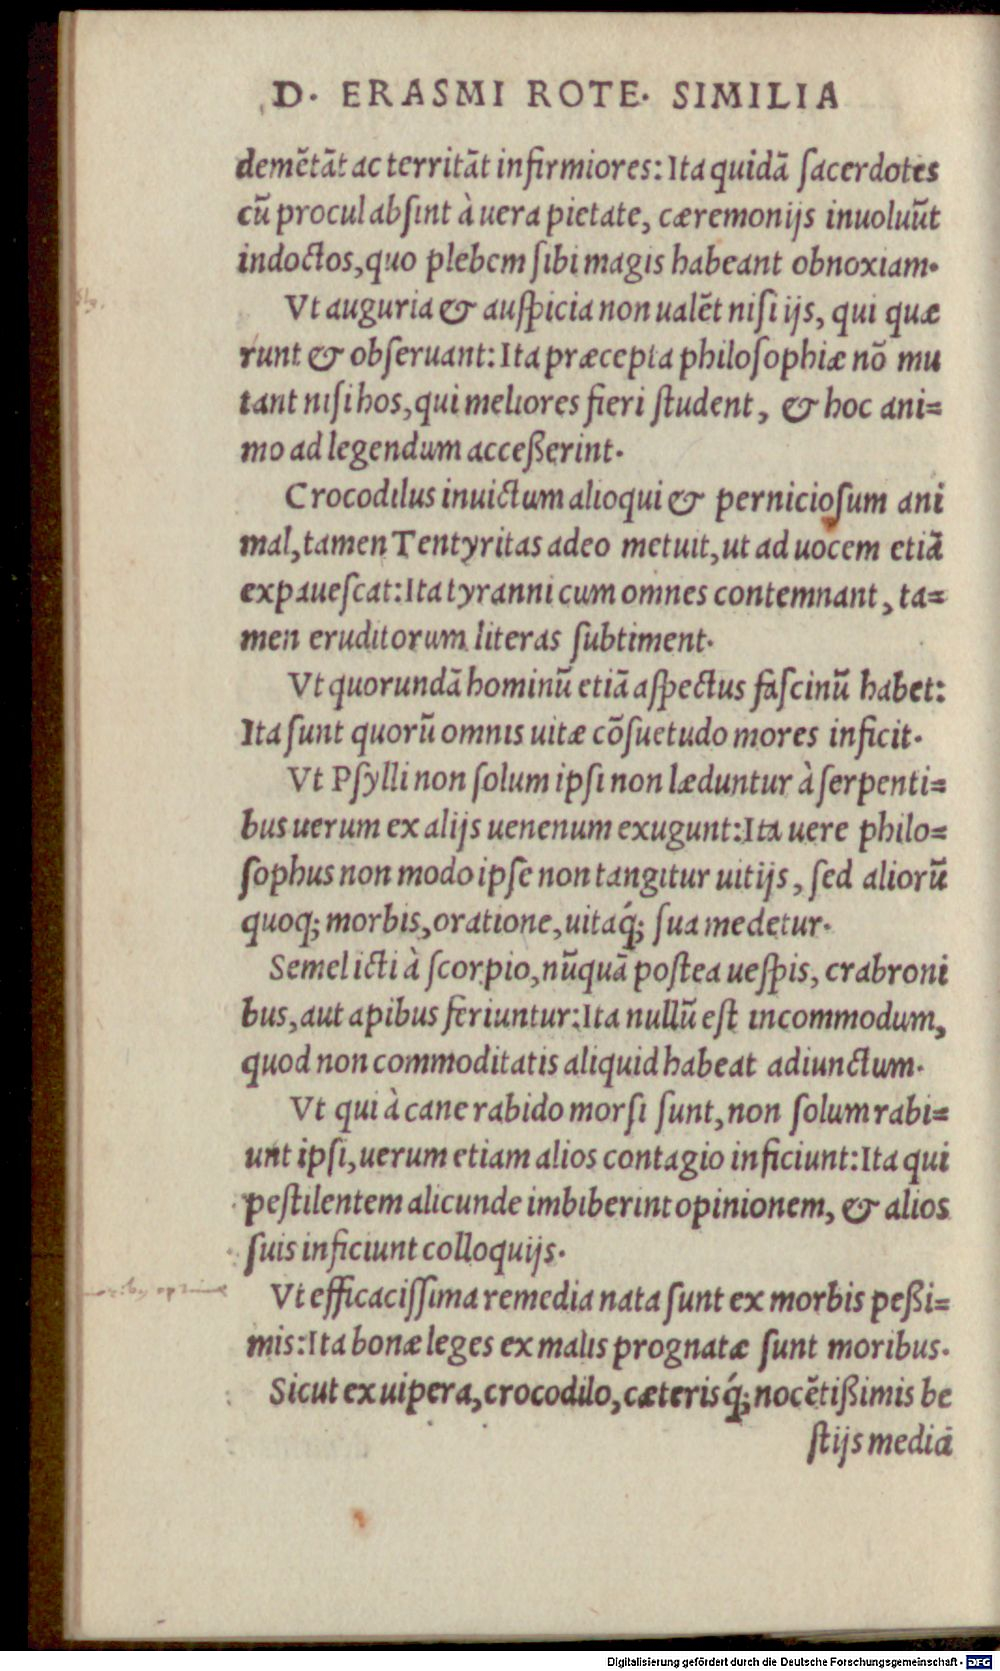 D. ERASMI ROTE. SIMILIA
demẽtãt ac territãt infirmiores: Ita quidã ſacerdotes
cũ procul abſint à uera pietate, cæremonijs inuoluũt
indoctos, quo plebem ſibi magis habeant obnoxiam.
Vt auguria & auſpicia non ualẽt niſi ijs, qui quæ
runt & obſeruant: Ita præcepta philoſophiæ nõ mu
tant niſi hos, qui meliores fieri ſtudent, & hoc ani=
mo ad legendum acceßerint.
Crocodilus inuictum alioqui & pernicioſum ani
mal, tamen Tentyritas adeo metuit, ut ad uocem etiã
expaueſcat: Ita tyranni cum omnes contemnant, ta=
men eruditorum literas ſubtiment.
Vt quorundã hominũ etiã aſpectus faſcinũ habet:
Ita ſunt quorũ omnis uitæ cõſuetudo mores inficit.
Vt Pſylli non ſolum ipſi non læduntur à ſerpenti=
bus uerum ex alijs uenenum exugunt: Ita uere philo=
ſophus non modo ipſe non tangitur uitijs, ſed aliorũ
quoq; morbis, oratione, uitaq́; ſua medetur.
Semel icti à ſcorpio, nũquã poſtea ueſpis, crabroni
bus, aut apibus feriuntur: Ita nullũ eſt incommodum,
quod non commoditatis aliquid habeat adiunctum.
Vt qui à cane rabido morſi ſunt, non ſolum rabi=
unt ipſi, uerum etiam alios contagio inficiunt: Ita qui
peſtilentem alicunde imbiberint opinionem, & alios
ſuis inficiunt colloquijs.
Vt efficaciſſima remedia nata ſunt ex morbis peßi=
mis: Ita bonæ leges ex malis prognatæ ſunt moribus.
Sicut ex uipera, crocodilo, cæteris q́; nocẽtißimis be
ſtijs mediã
Digitalisierung gefördert durch die Deutsche Forschungsgemeinschaft - DFG